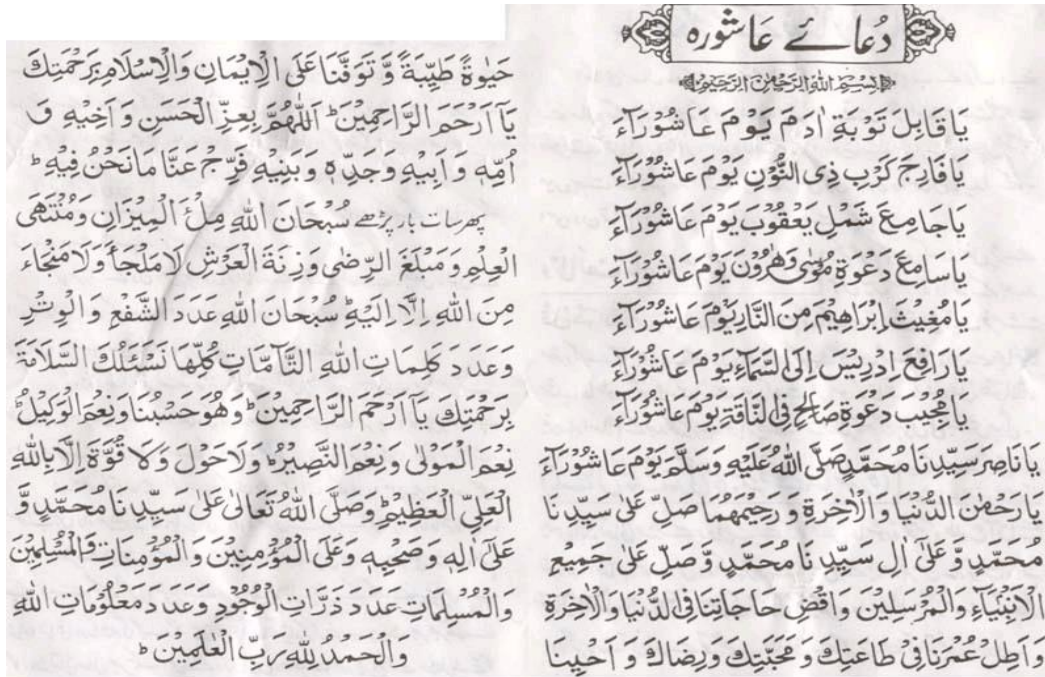 دُعائے عاشورہ
بِسْمِ اللهِ الرَّحْمٰنِ الرَّحِيْمِ
يَا قَابِلَ تَوْبَةِ اٰدَمَ يَوْمَ عَاشُوْرَآءَ
يَا فَارِجَ كَرْبِ ذِى النُّوْنِ يَوْمَ عَاشُوْرَآءَ
يَا جَامِعَ شَمْلِ يَعْقُوْبَ يَوْمَ عَاشُوْرَآءَ
يَا سَامِعَ دَعْوَةِ مُوْسٰى وَهٰرُوْنَ يَوْمَ عَاشُوْرَآءَ
يَا مُغِيْثَ اِبْرَاهِيْمَ مِنَ النَّارِ يَوْمَ عَاشُوْرَآءَ
يَا رَافِعَ اِدْرِيْسَ اِلَى السَّمَآءِ يَوْمَ عَاشُوْرَآءَ
يَا مُجِيْبَ دَعْوَةِ صَالِحٍ فِى النَّاقَةِ يَوْمَ عَاشُوْرَآءَ
يَا نَاصِرَ سَيِّدِنَا مُحَمَّدٍ صَلَّى اللهُ عَلَيْهِ وَسَلَّمَ يَوْمَ عَاشُوْرَآءَ
يَا رَحْمٰنَ الدُّنْيَا وَالْاٰخِرَةِ وَرَحِيْمَهُمَا صَلِّ عَلٰى سَيِّدِنَا
مُحَمَّدٍ وَّعَلٰى اٰلِ سَيِّدِنَا مُحَمَّدٍ وَّصَلِّ عَلٰى جَمِيْعِ
الْاَنْبِيَآءِ وَالْمُرْسَلِيْنَ وَاقْضِ حَاجَاتِنَا فِى الدُّنْيَا وَالْاٰخِرَةِ
وَاَطِلْ عُمْرَنَا فِىْ طَاعَتِكَ وَمَحَبَّتِكَ وَرِضَاكَ وَاَحْيِنَا
حَيٰوةً طَيِّبَةً وَّتَوَفَّنَا عَلَى الْاِيْمَانِ وَالْاِسْلَامِ بِرَحْمَتِكَ
يَآ اَرْحَمَ الرَّاحِمِيْنَ ؕ اَللّٰهُمَّ بِعِزِّ الْحَسَنِ وَاَخِيْهِ وَ
اُمِّهٖ وَاَبِيْهِ وَجَدِّهٖ وَبَنِيْهِ فَرِّجْ عَنَّا مَا نَحْنُ فِيْهِ ؕ
پھر سات بار پڑھے سُبْحَانَ اللهِ مِلْئَ الْمِيْزَانِ وَمُنْتَهَى
الْعِلْمِ وَمَبْلَغَ الرِّضٰى وَزِنَةَ الْعَرْشِ لَا مَلْجَأَ وَلَا مَنْجَاءَ
مِنَ اللهِ اِلَّا اِلَيْهِ ؕ سُبْحَانَ اللهِ عَدَدَ الشَّفْعِ وَالْوِتْرِ
وَعَدَدَ كَلِمَاتِ اللهِ التَّآمَّاتِ كُلِّهَا نَسْئَلُكَ السَّلَامَةَ
بِرَحْمَتِكَ يَآ اَرْحَمَ الرَّاحِمِيْنَ ؕ وَهُوَ حَسْبُنَا وَنِعْمَ الْوَكِيْلُ ؕ
نِعْمَ الْمَوْلٰى وَنِعْمَ النَّصِيْرُ ؕ وَلَا حَوْلَ وَلَا قُوَّةَ اِلَّا بِاللهِ
الْعَلِىِّ الْعَظِيْمِ ؕ وَصَلَّى اللهُ تَعَالٰى عَلٰى سَيِّدِنَا مُحَمَّدٍ وَّ
عَلٰى اٰلِهٖ وَصَحْبِهٖ وَعَلَى الْمُؤْمِنِيْنَ وَالْمُؤْمِنَاتِ وَالْمُسْلِمِيْنَ
وَالْمُسْلِمَاتِ عَدَدَ ذَرَّاتِ الْوُجُوْدِ وَعَدَدَ مَعْلُوْمَاتِ اللهِ
وَالْحَمْدُ لِلّٰهِ رَبِّ الْعٰلَمِيْنَ ؕ